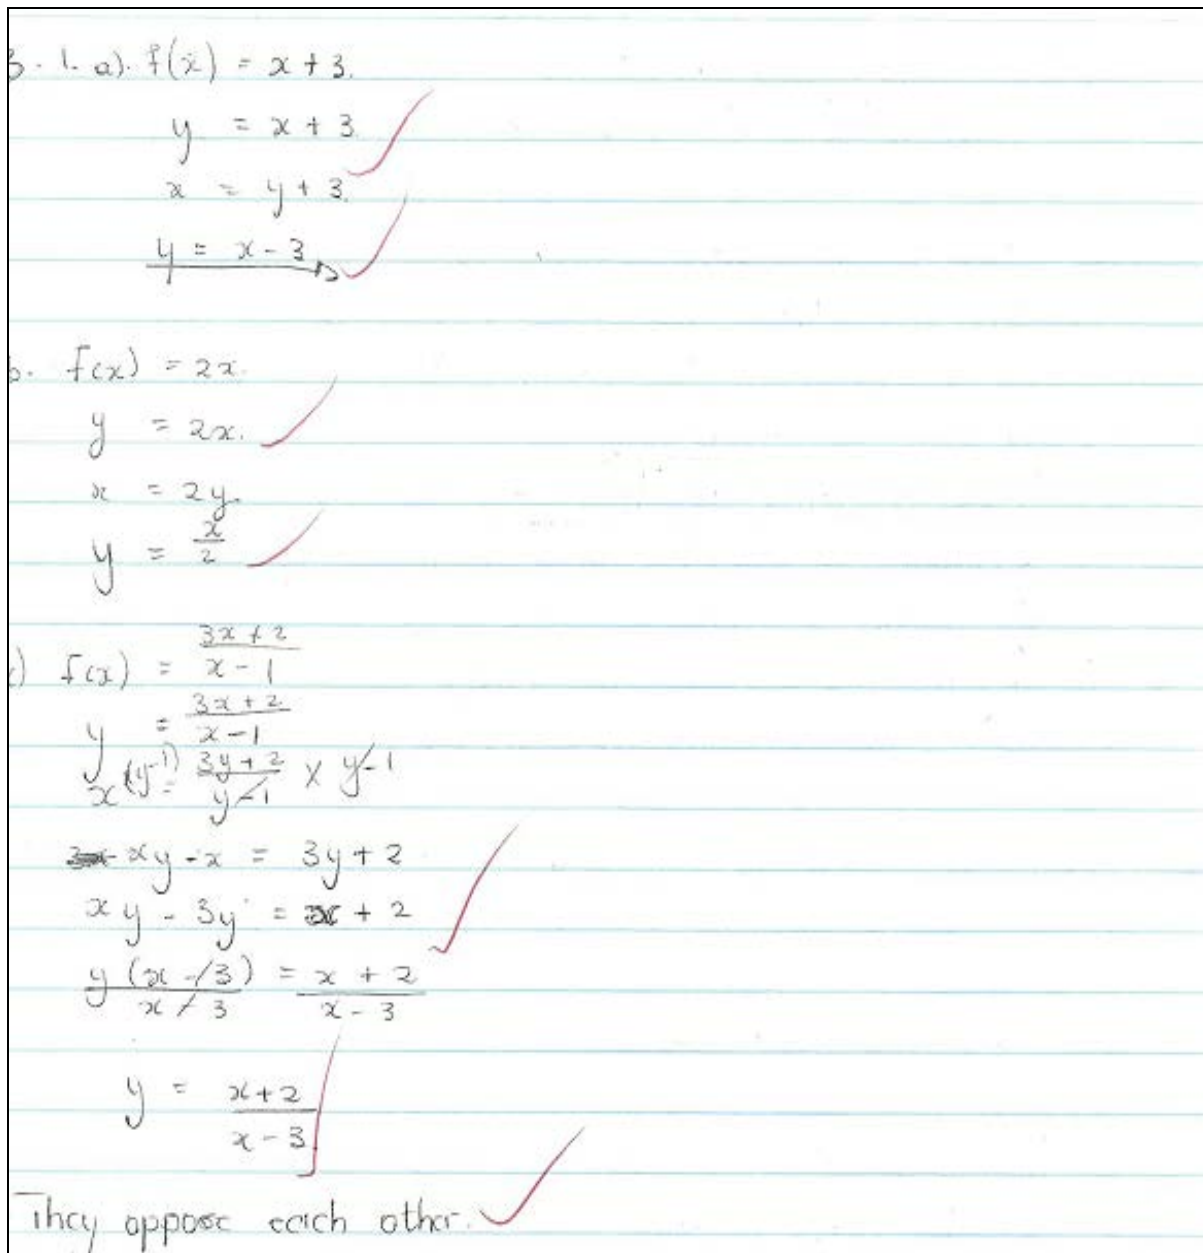 3. 1. a). f(x) = x + 3.
y = x + 3
x = y + 3.
y = x - 3
b. f(x) = 2x.
y = 2x.
x = 2y.
y = x/2
c) f(x) = (3x + 2)/(x - 1)
y = (3x + 2)/(x - 1)
x (y-1) = (3y + 2)/(y - 1) × y - 1
xy - x = 3y + 2
xy - 3y = x + 2
y (x - 3)/(x - 3) = (x + 2)/(x - 3)
y = (x + 2)/(x - 3)
They oppose each other.